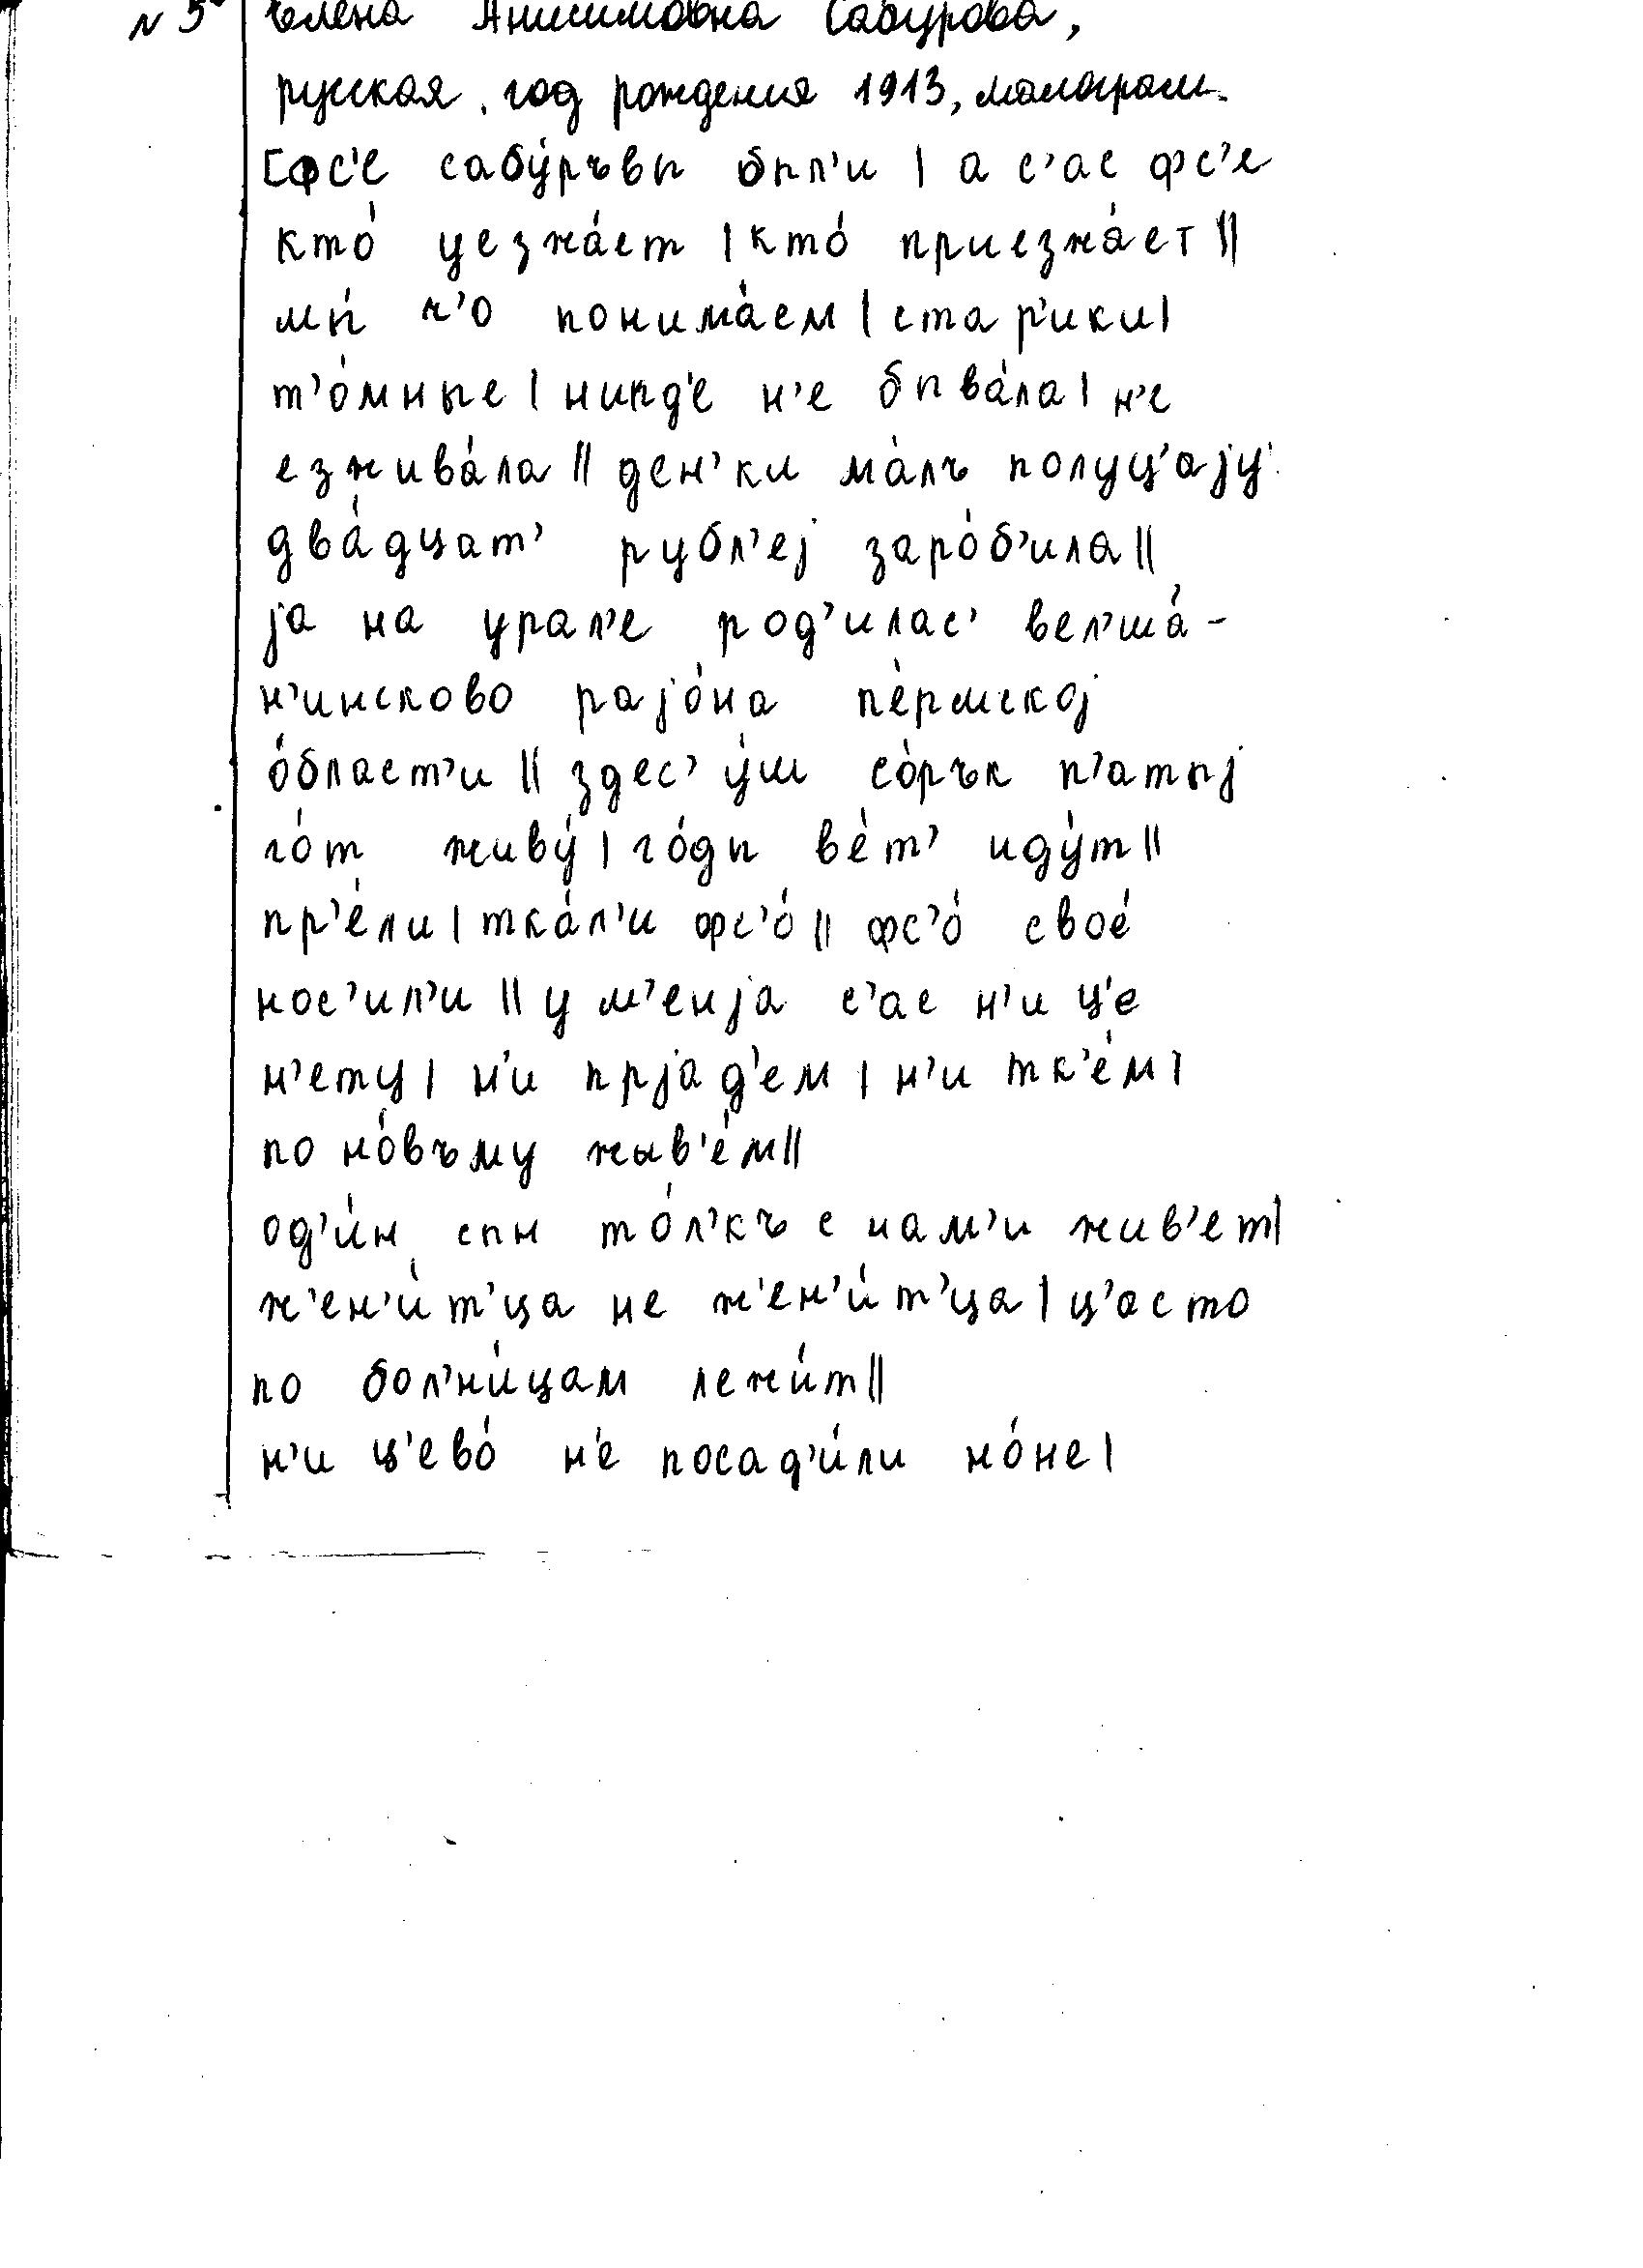 N 5 Елена Анисимовна Сабурова,
русская, год рождения 1913, малограм.
[фс'е сабу́ръвы был'и | а с'ас фс'е
кто́ уезжа́ет | кто́ приезжа́ет ||
мы́ ч'о понима́ем | стар'ики |
т'о́мные | нигд'е н'е быва́ла | н'е
езжива́ла || ден'ки ма́лъ полуц'ају
два́дцат' рубл'еј заро́б'ила ||
ја на урал'е род'илас' вел'ша́-
н'инсково рајо́на пе́рмској
о́бласт'и || здес' у́ш со́рък п'атыј
го́т живу́ | го́ды ве́т' иду́т ||
пр'е́ли | тка́л'и фс'о́ || фс'о́ свое́
нос'ил'и || у м'енја с'ас н'и ц'е
н'ету | н'и прјад'ем | н'и тк'е́м |
по но́въму жыв'е́м ||
од'и́н сын то́л'къ с нам'и жив'ет |
ж'ен'и́т'ца не ж'ен'и́т'ца | ц'асто
по бол'ни́цам лежи́т ||
н'и ц'ево́ н'е посад'и́ли но́не |